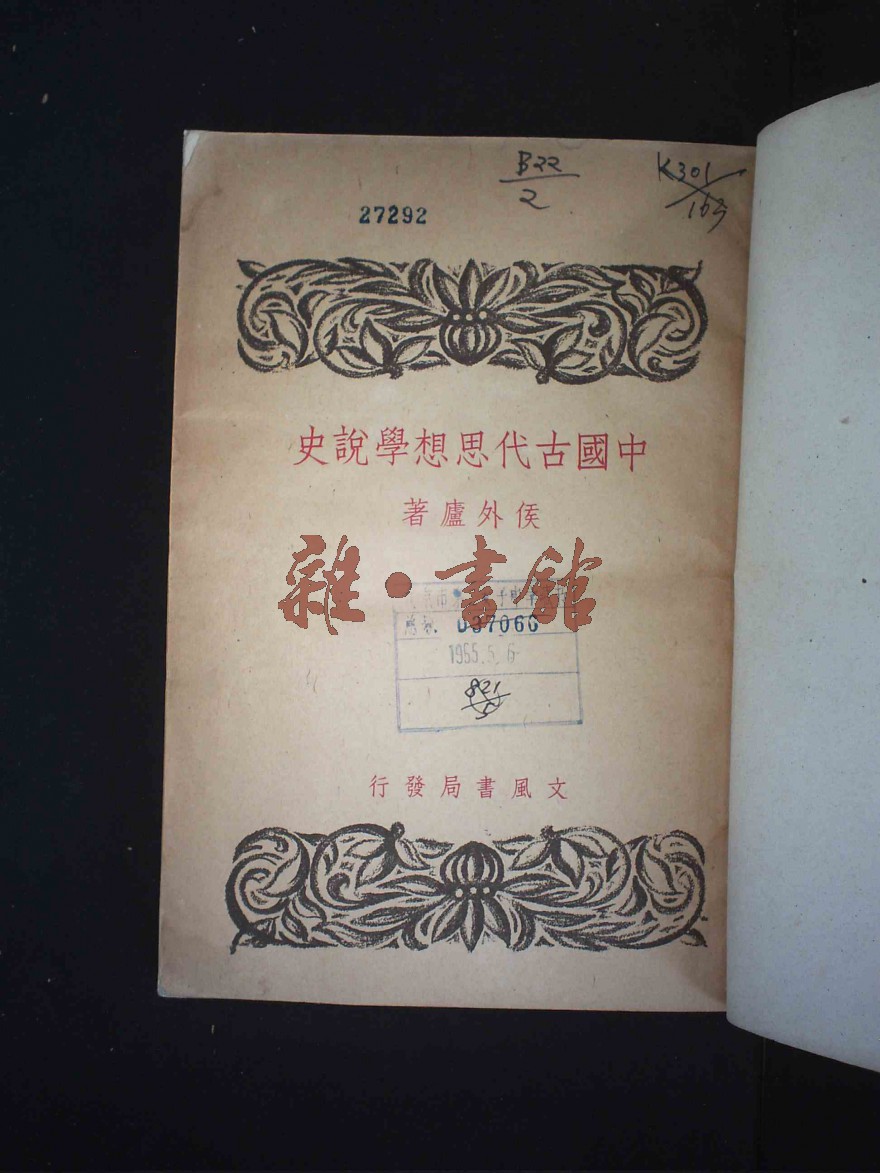 B22
2
K301
163
27292
中國古代思想學說史
侯外廬著
雜·書館
037066
1955.5.6
821
5
文風書局發行